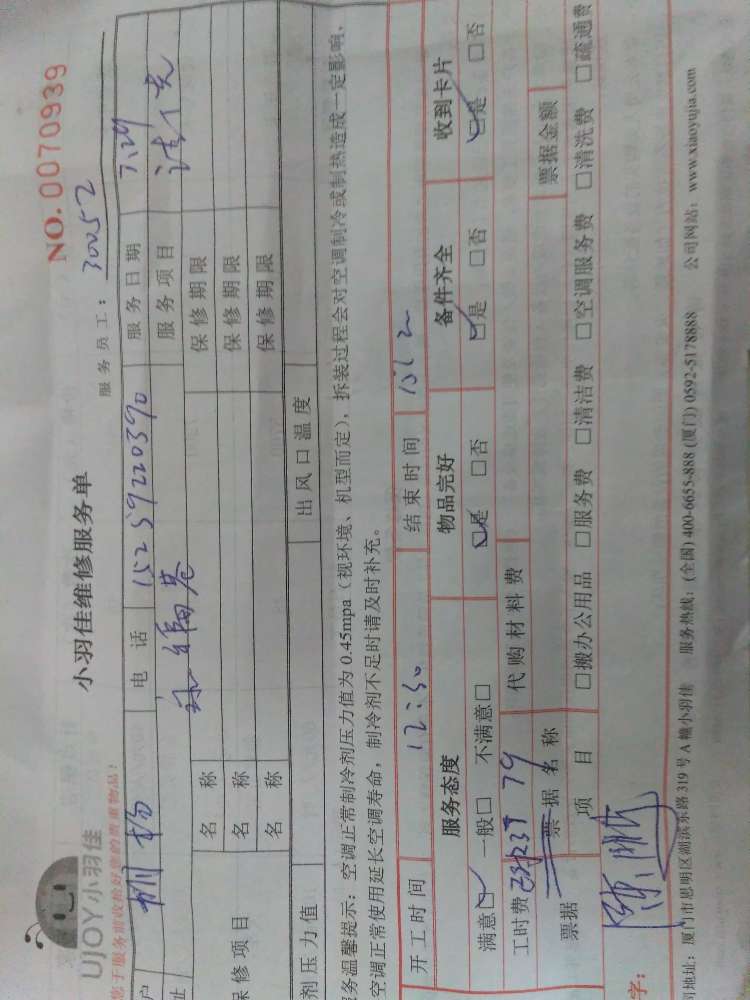 UJOY小羽佳
小羽佳维修服务单
NO. 0070939
您于服务前收拾好您的贵重物品！
服务员工：30052
户
电话 15259220390 服务日期 7.29
址
服务项目
保修项目 名称 保修期限
名称 保修期限
名称 保修期限
剂压力值 出风口温度
务温馨提示：空调正常制冷剂压力值为 0.45mpa（视环境、机型而定），拆装过程会对空调制冷或制热造成一定影响，
空调正常使用延长空调寿命，制冷剂不足时请及时补充。
开工时间 12:50 结束时间
服务态度 物品完好 备件齐全 收到卡片
满意☑ 一般□ 不满意□ ☑是 □否 ☑是 □否 ☑是 □否
工时费 79 代购材料费
票据 票据名称 票据金额
项目 □搬办公用品 □服务费 □清洁费 □空调服务费 □清洗费 □疏通费
字：
司地址：厦门市思明区湖滨东路 319 号 A 幢小羽佳 服务热线：(全国) 400-6655-888 (厦门) 0592-5178888 公司网站：www.xiaoyujia.com